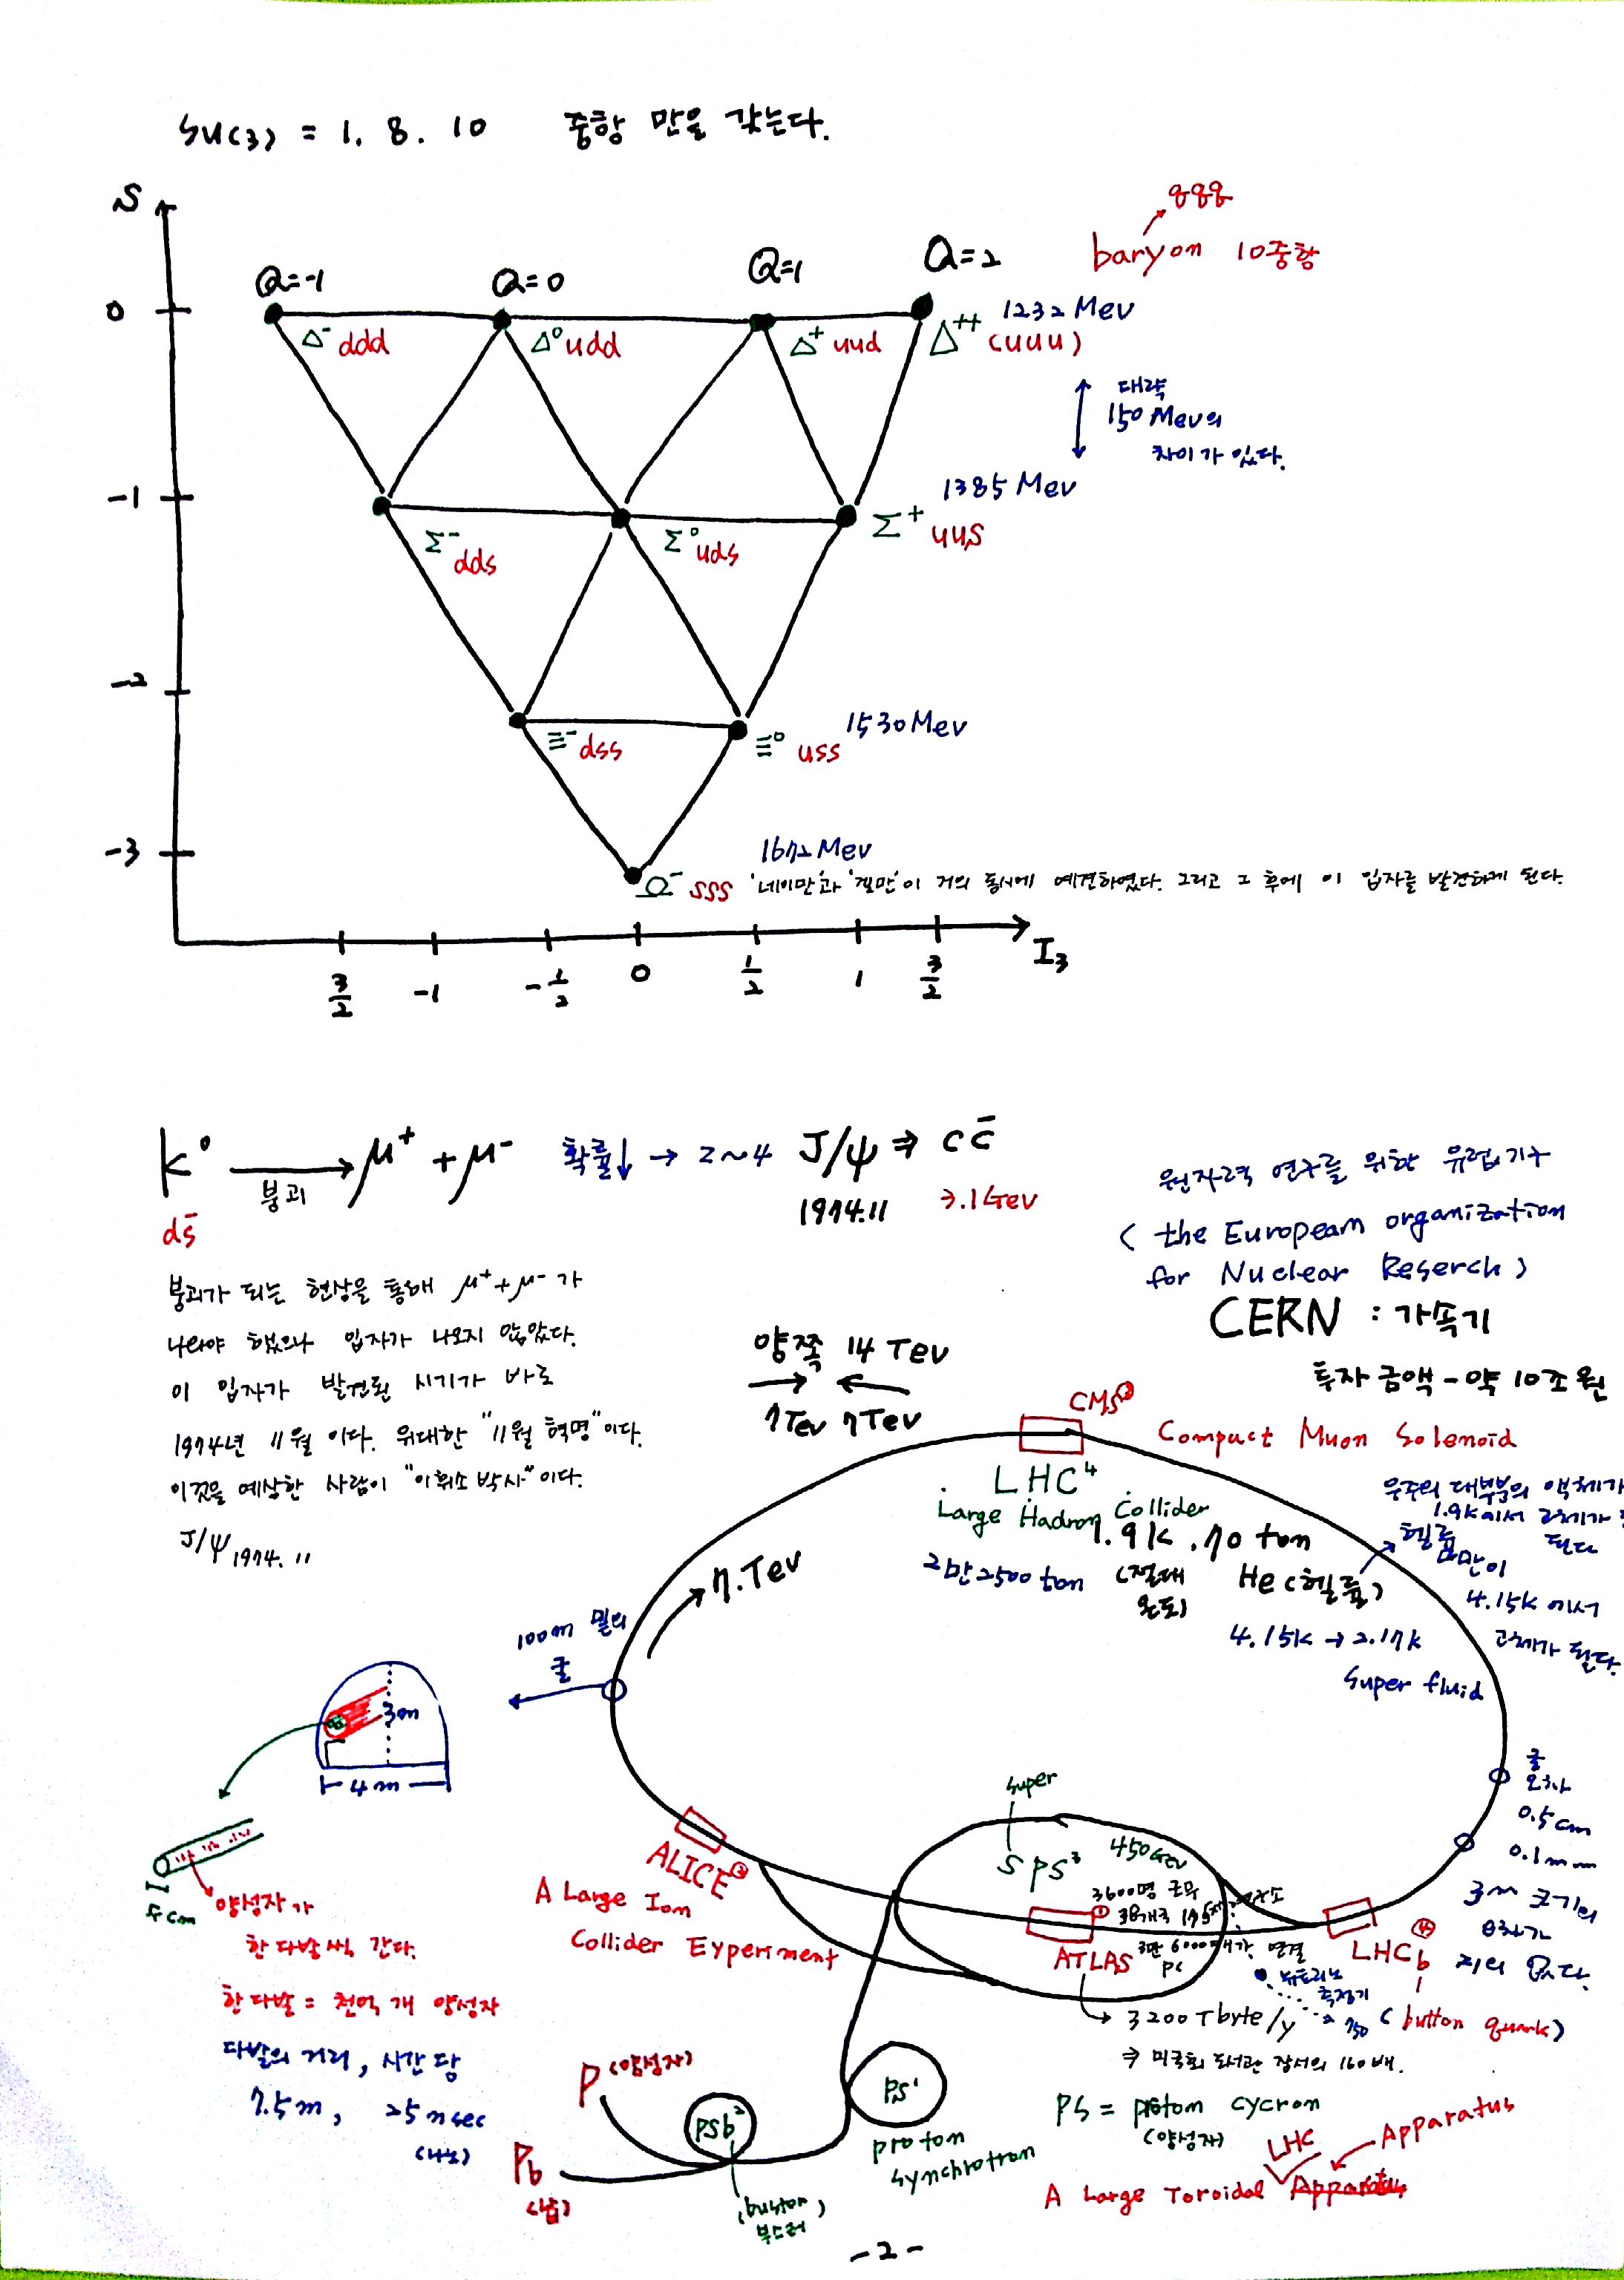 SU(3) = 1. 8. 10 중항 만을 갖는다.
qqq
baryon 10중항
S
Q=-1 Q=0 Q=1 Q=2
0
1232 Mev
Δ⁻ ddd Δ⁰ udd Δ⁺ uud Δ⁺⁺ (uuu)
대략
150 Mev의
차이가 있다.
-1
1385 Mev
Σ⁻ dds Σ⁰ uds Σ⁺ uus
-2
1530 Mev
Ξ⁻ dss Ξ⁰ uss
-3
1672 Mev
Ω⁻ sss '네이만'과 '겔만'이 거의 동시에 예견하였다. 그리고 그 후에 이 입자를 발견하게 된다.
I₃
3/2 -1 -1/2 0 1/2 1 3/2
K⁰ → μ⁺ + μ⁻ 확률↓ → 2~4 J/ψ ⇒ c c̄
붕괴
ds̄
1974.11 3.1 Gev
붕괴가 되는 현상을 통해 μ⁺+μ⁻가
나와야 했으나 입자가 나오지 않았다.
이 입자가 발견된 시기가 바로
1974년 11월 이다. 위대한 "11월 혁명"이다.
이것을 예상한 사람이 "이휘소 박사"이다.
J/ψ 1974. 11
원자력 연구를 위한 유럽기구
( the European organization
for Nuclear Reserch )
CERN : 가속기
투자 금액 - 약 10조 원
양쪽 14 Tev
7Tev 7Tev
CMS ②
Compact Muon Solenoid
LHC⁴
Large Hadron Collider
1.9k . 70 ton
2만 2500 ton (절대
온도)
He (헬륨)
4.15k → 2.17k
Super fluid
우주의 대부분의 액체가
1.9k에서 고체가
된다
헬륨
만이
4.15k 에서
고체가 된다.
7.Tev
100m 밑의
굴
3m
4m
굴
오차
0.5cm
0.1mm
3m 크기의
오차가
거의 없다.
5cm
양성자가
한 다발씩 간다.
한 다발 = 천억 개 양성자
다발의 거리, 시간 당
7.5m, 25 nsec
(나노)
ALICE ③
A Large Ion
Collider Experiment
super
SPS³
450Gev
3600명 근무
38개국
3만 6000대가 연결
PC
ATLAS ①
LHCb ④
( button quark )
뉴트리노
측정기
750
3200 Tbyte/y
⇒ 미국회 도서관 장서의 160배.
P (양성자)
Pb
(납)
PSb²
(buster)
부스터
PS¹
proton
synchrotron
PS = proton cycron
(양성자)
LHC
Apparatus
A Large Toroidal Apparatus
-2-